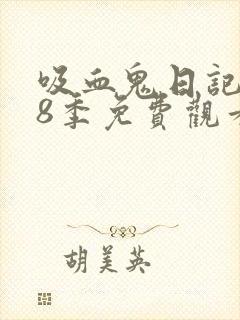 吸血鬼日記
8季免費觀
胡美英